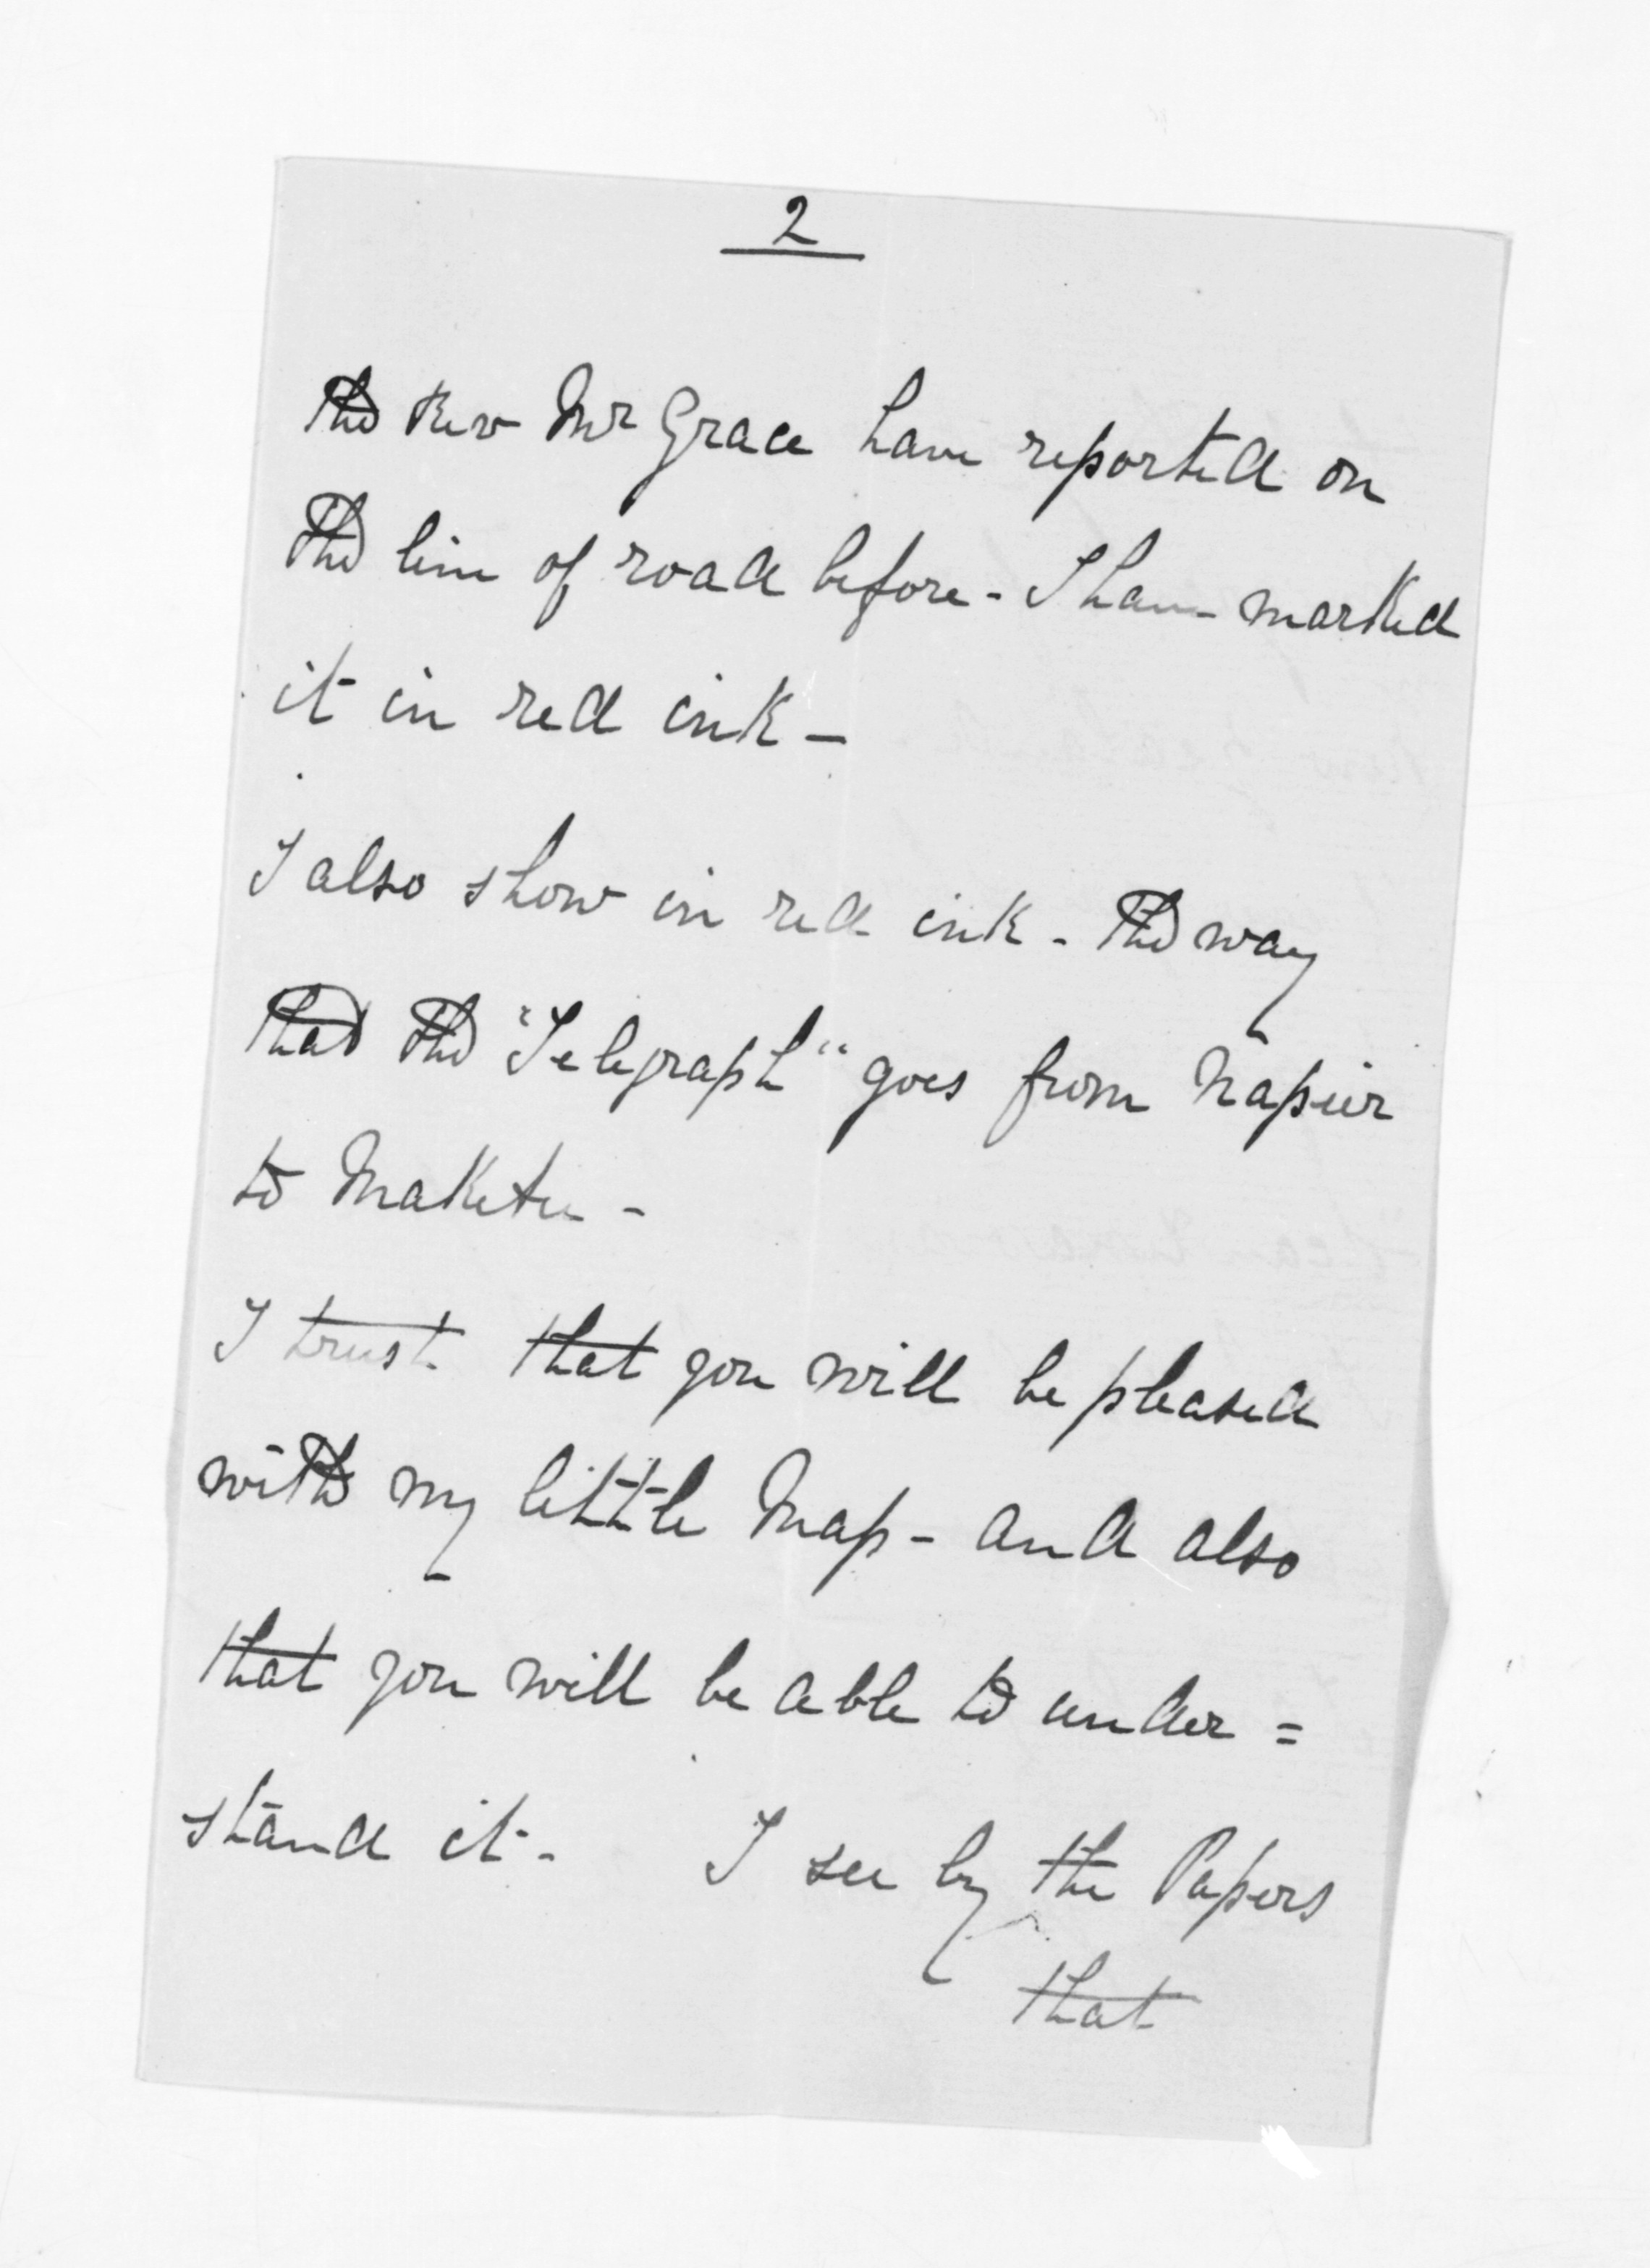 2
the Rev Mr Grace have reported on
the line of road before - I have marked
it in red ink -
I also show in red ink - the way
that the "Telegraph" goes from Napier
to Maketu -
I trust that you will be pleased
with my little Map - and also
that you will be able to under =
stand it - I see by the Papers
that